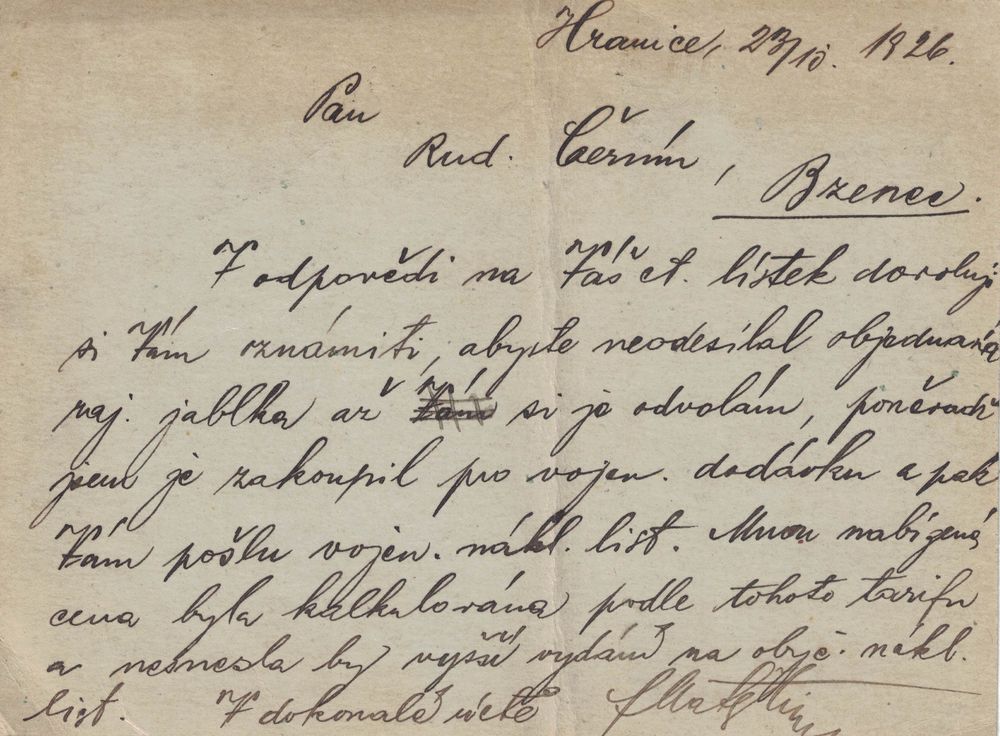 Hranice, 23/10. 1926.
Pan
Rud. Černín,
Bzenec.
V odpovědi na Váš ct. lístek dovoluji
si Vám oznámiti, abyste neodesílal objednaná
jablka až Vám si je odvolám, poněvadž
jsem je zakoupil pro vojen. dodávku a pak
Vám pošlu vojen. nákl. list. Mnou nabízená
cena byla kalkulována podle tohoto tarifu
a nesnesla by vyšší vydání na obyč. nákl.
list. V dokonalé úctě